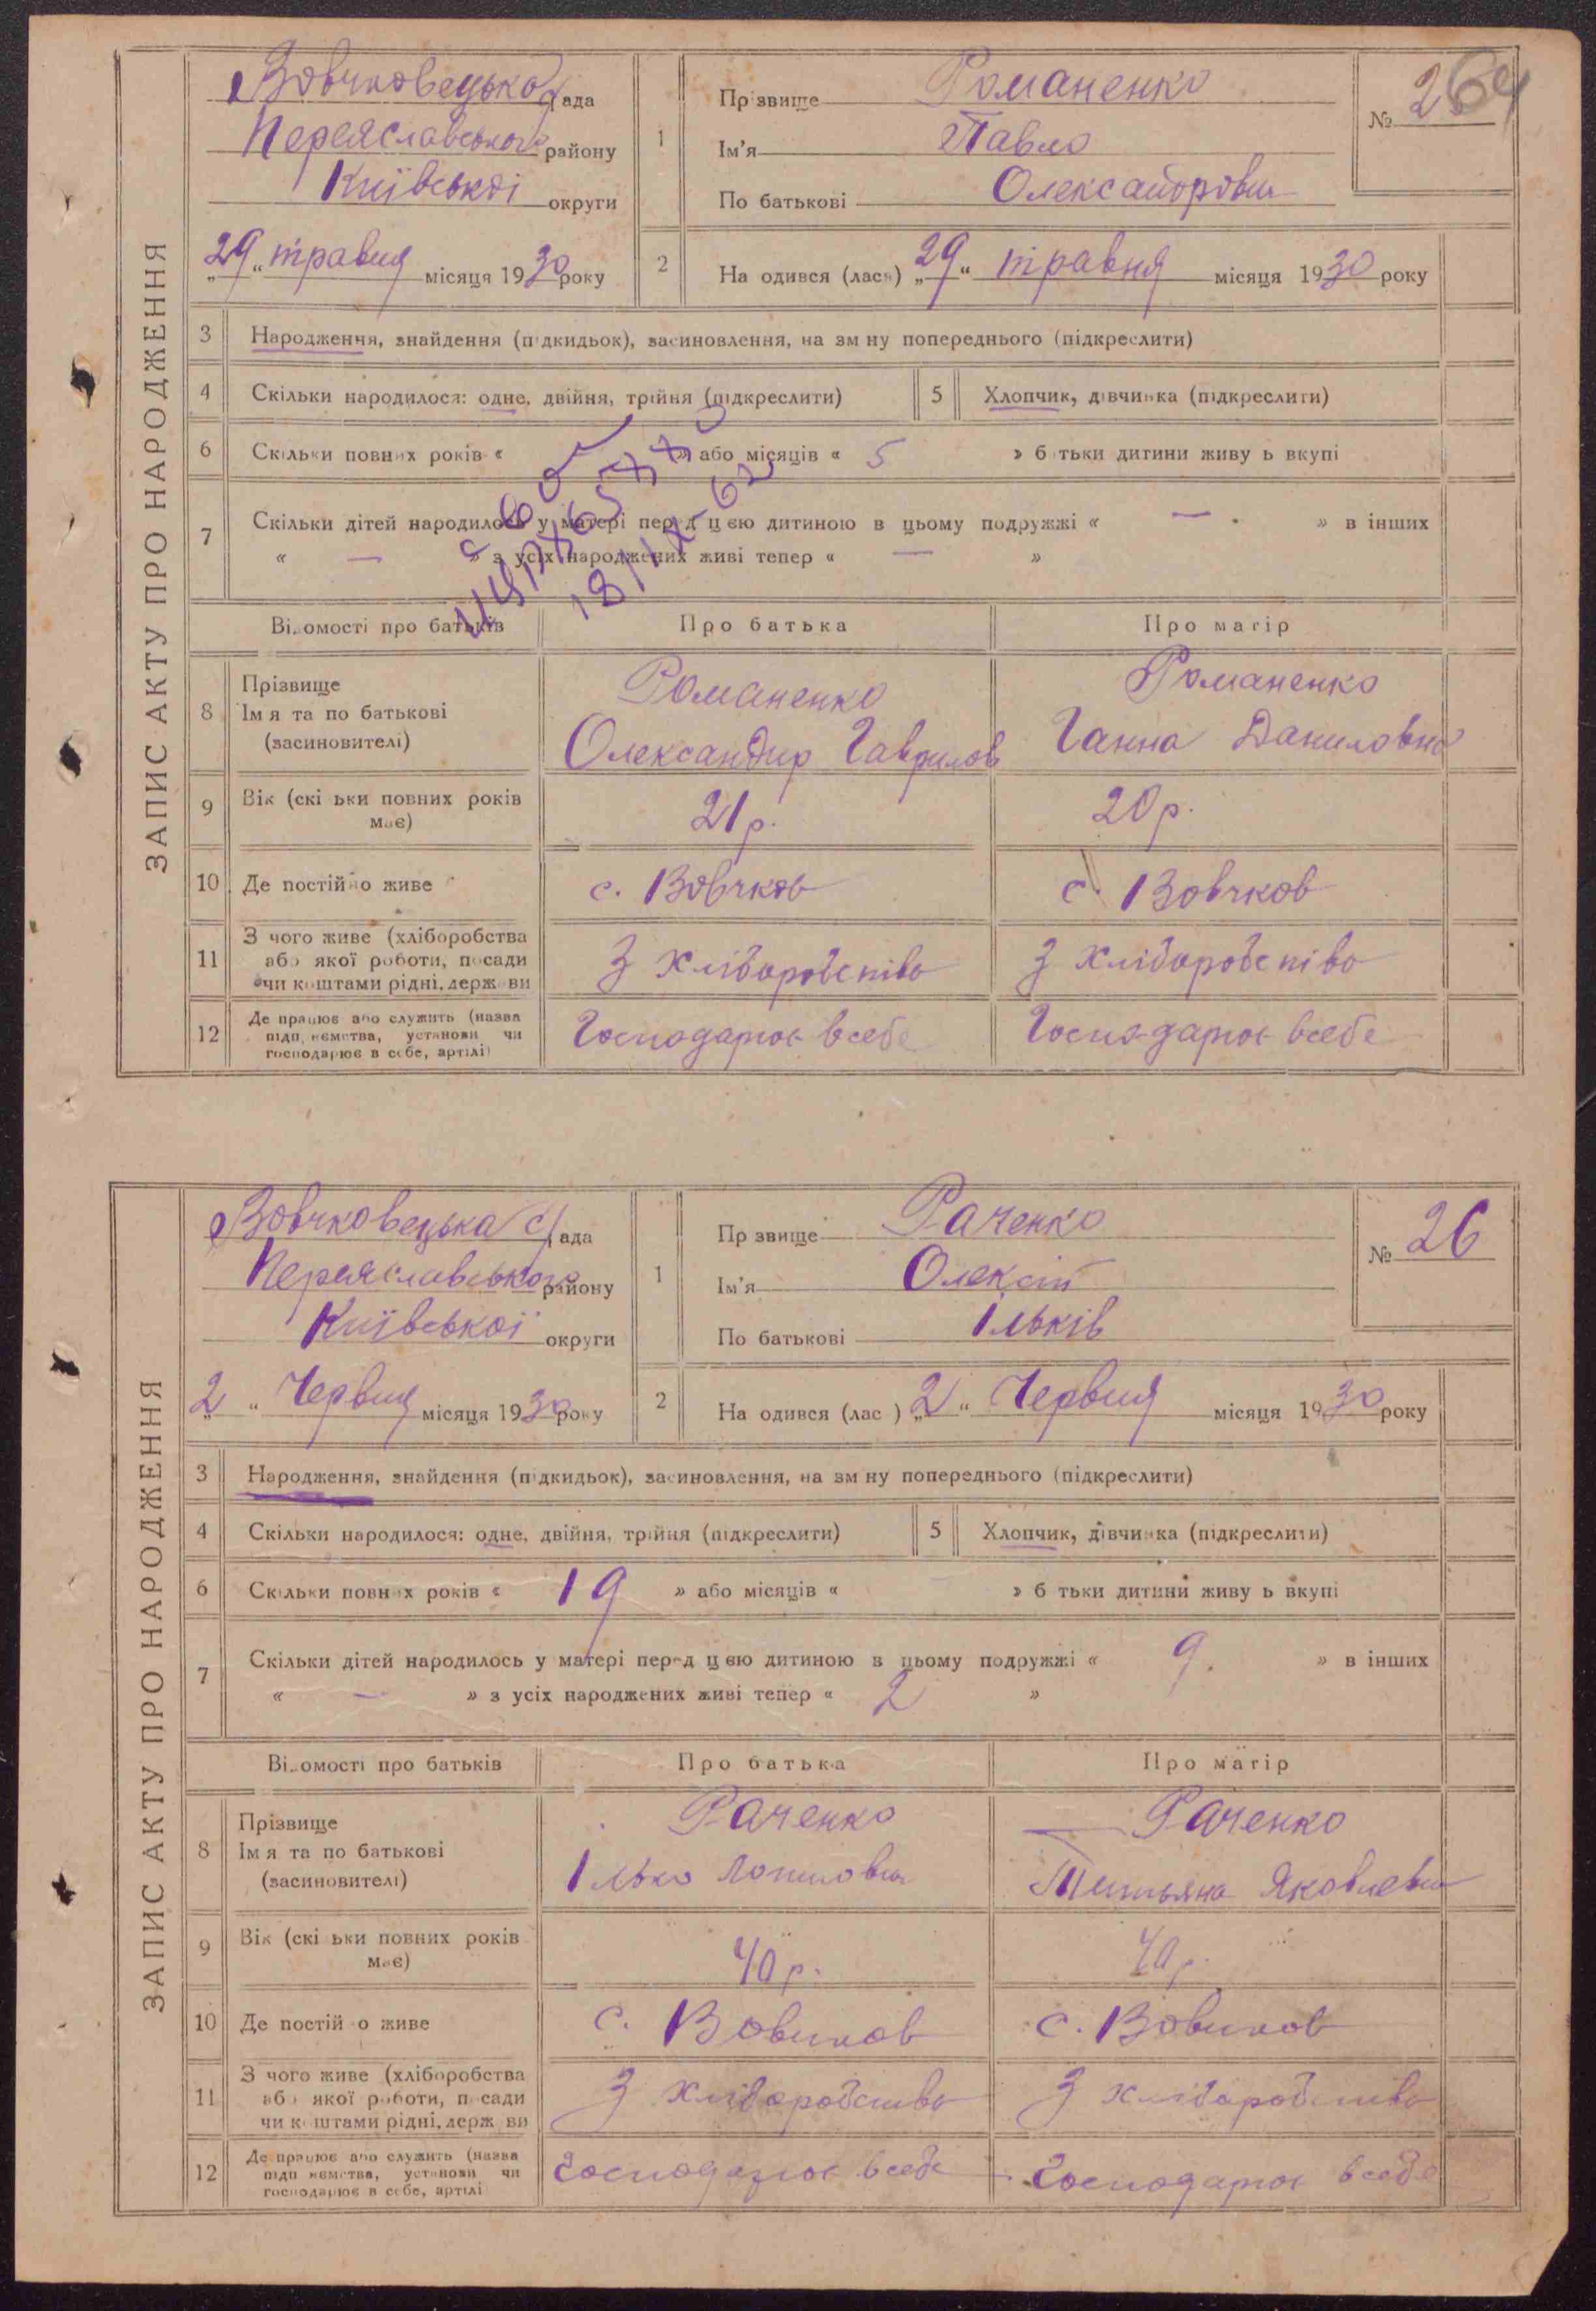 ЗАПИС АКТУ ПРО НАРОДЖЕННЯ
Вовчковецька рада
Переяславського району
Київської округи
„29“ травня місяця 1930 року
1
Прізвище Романенко
Ім'я Павло
По батькові
№ 26
2
На одився (лася) „29“ травня місяця 1930 року
3 Народження, знайдення (підкидьок), засиновлення, на зм ну попереднього (підкреслити)
4 Скільки народилося: одне, двійня, трійня (підкреслити)
5 Хлопчик, дівчинка (підкреслити)
6 Скільки повних років « » або місяців « 5 » б тьки дитини живу ь вкупі
7 Скільки дітей народилось у матері перед цією дитиною в цьому подружжі « — » в інших
« — » з усіх народжених живі тепер « — »
18/IX-62
Відомості про батьків Про батька Про матір
8 Прізвище Романенко Романенко
Ім я та по батькові
(засиновителі) Олександир Гаврилов Ганна Даниловна
9 Вік (скі ьки повних років має) 21 р. 20 р.
10 Де постійно живе с. Вовчков с. Вовчков
11 З чого живе (хліборобства
або якої роботи, посади
чи коштами рідні, держ ви З хліборобства З хліборобства
12 Де працює або служить (назва
підп иємства, установи чи
господарює в себе, артілі) Господарює в себе Господарює в себе
ЗАПИС АКТУ ПРО НАРОДЖЕННЯ
Вовчковецька с/рада
Переяславського району
Київської округи
„2“ Червня місяця 1930 року
1
Пр звище Раченко
Ім'я Олексій
По батькові Ільків
№ 26
2
На одився (лас ) „2“ Червня місяця 1930 року
3 Народження, знайдення (підкидьок), засиновлення, на зм ну попереднього (підкреслити)
4 Скільки народилося: одне, двійня, трійня (підкреслити)
5 Хлопчик, дівчинка (підкреслити)
6 Скільки повних років « 19 » або місяців « » б тьки дитини живу ь вкупі
7 Скільки дітей народилось у матері перед цією дитиною в цьому подружжі « 9. » в інших
« — » з усіх народжених живі тепер « 2 »
Відомості про батьків Про батька Про матір
8 Прізвище Раченко Раченко
Ім я та по батькові
(засиновителі) Ілько Титьяна Яковлевна
9 Вік (скі ьки повних років має) 40 р. 40 р.
10 Де постій о живе с. Вовчков с. Вовчков
11 З чого живе (хліборобства
або якої роботи, посади
чи коштами рідні, держ ви З хліборобства З хліборобства
12 Де працює або служить (назва
підп иємства, установи чи
господарює в себе, артілі Господарює в себе Господарює в себе